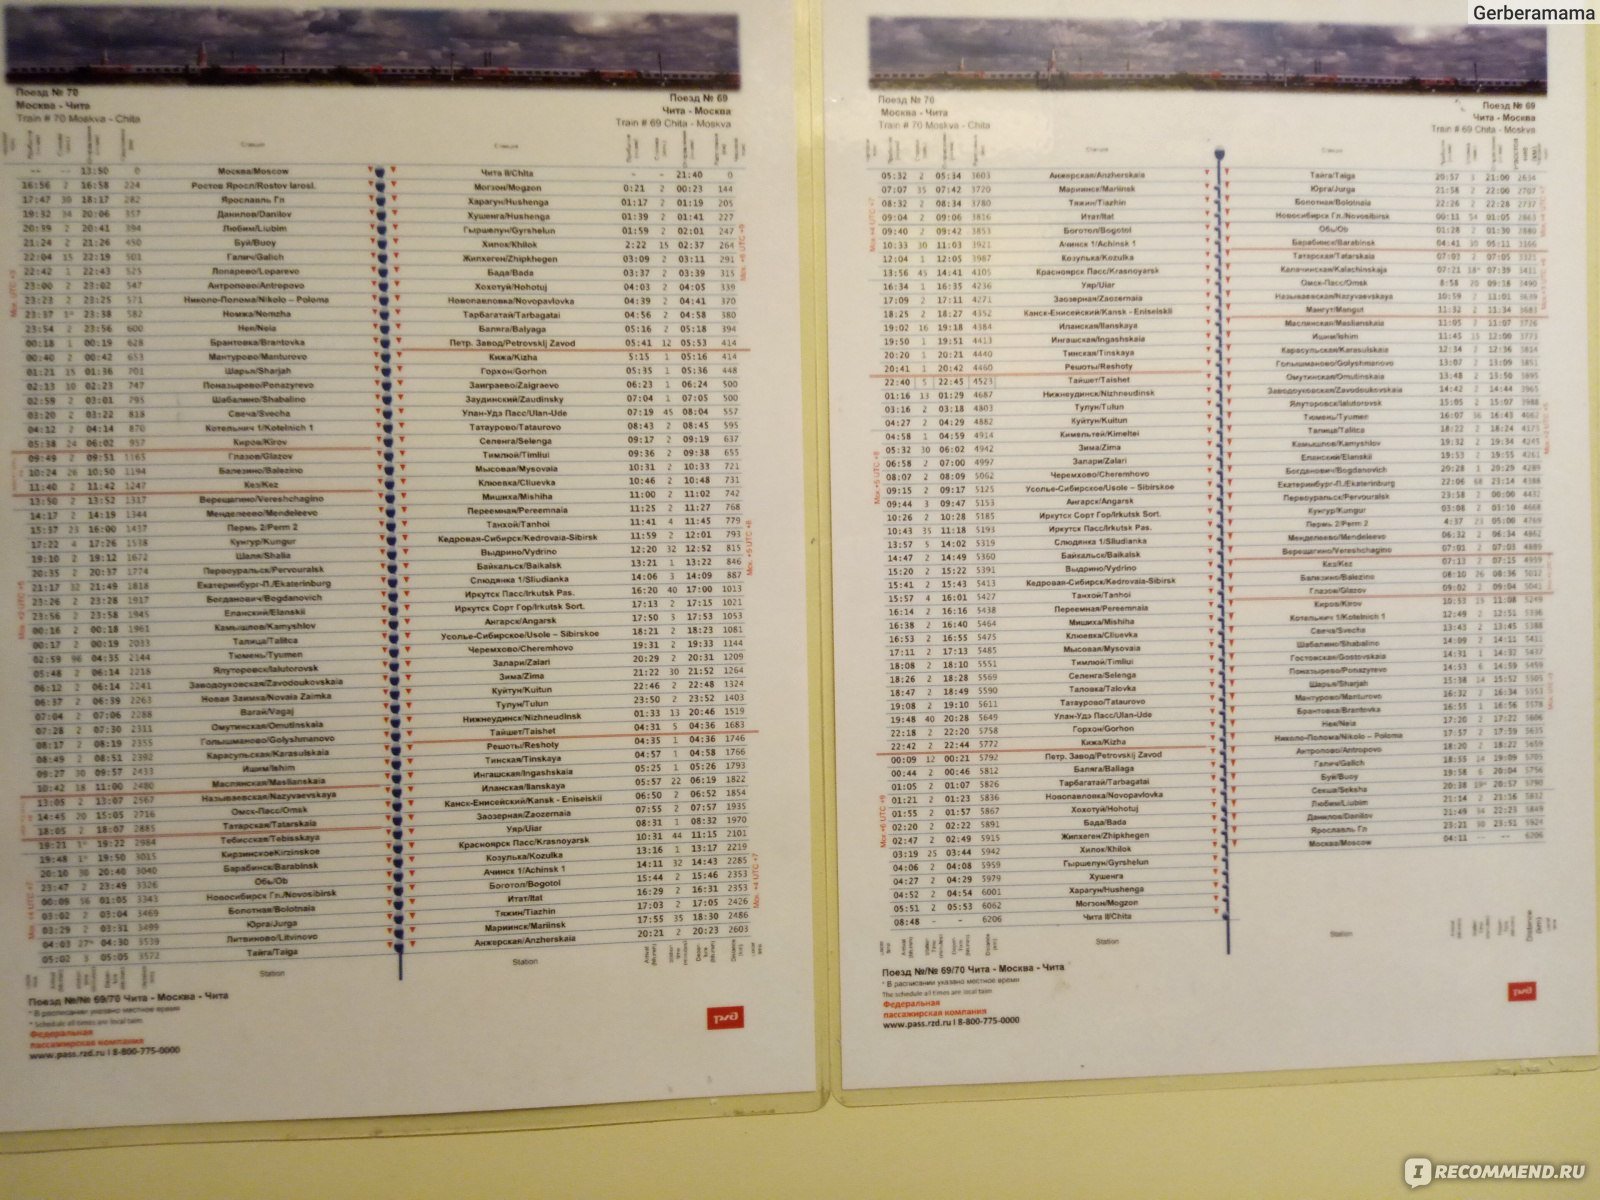 Gerberamama
Поезд № 70
Москва - Чита
Train # 70 Moskva - Chita
Поезд № 69
Чита - Москва
Train # 69 Chita - Moskva
13:50 0 Москва/Moscow
16:56 2 16:58 224 Ростов Яросл/Rostov Iarosl.
17:47 30 18:17 282 Ярославль Гл
19:32 34 20:06 357 Данилов/Danilov
20:39 2 20:41 394 Любим/Liubim
21:24 2 21:26 450 Буй/Buoy
22:04 15 22:19 501 Галич/Galich
22:42 1 22:43 525 Лопарево/Loparevo
23:00 2 23:02 547 Антропово/Antropovo
23:23 2 23:25 571 Николо-Полома/Nikolo – Poloma
23:37 1* 23:38 582 Номжа/Nomzha
23:54 2 23:56 600 Нея/Neia
00:18 1 00:19 628 Брантовка/Brantovka
00:40 2 00:42 653 Мантурово/Manturovo
01:21 15 01:36 701 Шарья/Sharjah
02:13 10 02:23 747 Поназырево/Ponazyrevo
02:59 2 03:01 795 Шабалино/Shabalino
03:20 2 03:22 818 Свеча/Svecha
04:12 2 04:14 870 Котельнич 1/Kotelnich 1
05:38 24 06:02 957 Киров/Kirov
09:49 2 09:51 1165 Глазов/Glazov
10:24 26 10:50 1194 Балезино/Balezino
11:40 2 11:42 1247 Кез/Kez
13:50 2 13:52 1317 Верещагино/Vereshchagino
14:17 2 14:19 1344 Менделеево/Mendeleevo
15:37 23 16:00 1437 Пермь 2/Perm 2
17:22 4 17:26 1538 Кунгур/Kungur
19:10 2 19:12 1672 Шаля/Shalia
20:35 2 20:37 1774 Первоуральск/Pervouralsk
21:17 32 21:49 1818 Екатеринбург-П./Ekaterinburg
23:26 2 23:28 1917 Богданович/Bogdanovich
23:56 2 23:58 1945 Еланский/Elanskii
00:16 2 00:18 1961 Камышлов/Kamyshlov
00:17 2 00:19 2033 Талица/Talitca
02:59 96 04:35 2144 Тюмень/Tyumen
05:48 2 06:14 2218 Ялуторовск/Ialutorovsk
06:12 2 06:14 2241 Заводоуковская/Zavodoukovskaia
06:37 2 06:39 2263 Новая Заимка/Novaia Zaimka
07:04 2 07:06 2288 Вагай/Vagaj
07:28 2 07:30 2311 Омутинская/Omutinskaia
08:17 2 08:19 2355 Голышманово/Golyshmanovo
08:49 2 08:51 2392 Карасульская/Karasulskaia
09:27 30 09:57 2433 Ишим/Ishim
10:42 18 11:00 2480 Маслянская/Maslianskaia
13:05 2 13:07 2567 Называевская/Nazyvaevskaya
14:45 20 15:05 2716 Омск-Пасс/Omsk
18:05 2 18:07 2885 Татарская/Tatarskaia
19:21 1* 19:22 2984 Тебисская/Tebisskaya
19:48 1* 19:50 3015 КирзинскоеKirzinskoe
20:10 30 20:40 3040 Барабинск/Barabinsk
23:47 2 23:49 3326 Обь/Ob
00:09 56 01:05 3343 Новосибирск Гл./Novosibirsk
03:02 2 03:04 3469 Болотная/Bolotnaia
03:29 2 03:31 3499 Юрга/Jurga
04:03 27* 04:30 3539 Литвиново/Litvinovo
05:02 3 05:05 3572 Тайга/Taiga
Station
Чита II/Chita - - 21:40 0
Могзон/Mogzon 0:21 2 00:23 144
Харагун/Hushenga 01:17 2 01:19 205
Хушенга/Hushenga 01:39 2 01:41 227
Гыршелун/Gyrshelun 01:59 2 02:01 247
Хилок/Khilok 2:22 15 02:37 264
Жипхеген/Zhipkhegen 03:09 2 03:11 291
Бада/Bada 03:37 2 03:39 315
Хохотуй/Hohotuj 04:03 2 04:05 339
Новопавловка/Novopavlovka 04:39 2 04:41 370
Тарбагатай/Tarbagatai 04:56 2 04:58 380
Баляга/Balyaga 05:16 2 05:18 394
Петр. Завод/Petrovskij Zavod 05:41 12 05:53 414
Кижа/Kizha 5:15 1 05:16 414
Горхон/Gorhon 05:35 1 05:36 448
Заиграево/Zaigraevo 06:23 1 06:24 500
Заудинский/Zaudinsky 07:04 1 07:05 500
Улан-Удэ Пасс/Ulan-Ude 07:19 45 08:04 557
Татаурово/Tataurovo 08:43 2 08:45 595
Селенга/Selenga 09:17 2 09:19 637
Тимлюй/Timliui 09:36 2 09:38 655
Мысовая/Mysovaia 10:31 2 10:33 721
Клюевка/Cliuevka 10:46 2 10:48 731
Мишиха/Mishiha 11:00 2 11:02 742
Переемная/Pereemnaia 11:25 2 11:27 768
Танхой/Tanhoi 11:41 4 11:45 779
Кедровая-Сибирск/Kedrovaia-Sibirsk 11:59 2 12:01 793
Выдрино/Vydrino 12:20 32 12:52 815
Байкальск/Baikalsk 13:21 1 13:22 846
Слюдянка 1/Sliudianka 14:06 3 14:09 887
Иркутск Пасс/Irkutsk Pas. 16:20 40 17:00 1013
Иркутск Сорт Гор/Irkutsk Sort. 17:13 2 17:15 1021
Ангарск/Angarsk 17:50 3 17:53 1053
Усолье-Сибирское/Usole – Sibirskoe 18:21 2 18:23 1081
Черемхово/Cheremhovo 19:31 2 19:33 1144
Залари/Zalari 20:29 2 20:31 1209
Зима/Zima 21:22 30 21:52 1264
Куйтун/Kuitun 22:46 2 22:48 1324
Тулун/Tulun 23:50 2 23:52 1403
Нижнеудинск/Nizhneudinsk 01:33 13 20:46 1519
Тайшет/Taishet 04:31 5 04:36 1683
Решоты/Reshoty 04:35 1 04:36 1746
Тинская/Tinskaya 04:57 1 04:58 1766
Ингашская/Ingashskaia 05:25 1 05:26 1793
Иланская/Ilanskaya 05:57 22 06:19 1822
Канск-Енисейский/Kansk - Eniseiskii 06:50 2 06:52 1854
Заозерная/Zaozernaia 07:55 2 07:57 1935
Уяр/Uiar 08:31 1 08:32 1970
Красноярск Пасс/Krasnoyarsk 10:31 44 11:15 2101
Козулька/Kozulka 13:16 1 13:17 2219
Ачинск 1/Achinsk 1 14:11 32 14:43 2285
Боготол/Bogotol 15:44 2 15:46 2353
Итат/Itat 16:29 2 16:31 2353
Тяжин/Tiazhin 17:03 2 17:05 2426
Мариинск/Mariinsk 17:55 35 18:30 2486
Анжерская/Anzherskaia 20:21 2 20:23 2603
Station
Поезд №/№ 69/70 Чита - Москва - Чита
* В расписании указано местное время
* Schedule all times are local taim
Федеральная
пассажирская компания
www.pass.rzd.ru I 8-800-775-0000
Поезд № 70
Москва - Чита
Train # 70 Moskva - Chita
Поезд № 69
Чита - Москва
Train # 69 Chita - Moskva
05:32 2 05:34 3603 Анжерская/Anzherskaia
07:07 35 07:42 3720 Мариинск/Mariinsk
08:32 2 08:34 3780 Тяжин/Tiazhin
09:04 2 09:06 3816 Итат/Itat
09:40 2 09:42 3853 Боготол/Bogotol
10:33 30 11:03 3921 Ачинск 1/Achinsk 1
12:04 1 12:05 3987 Козулька/Kozulka
13:56 45 14:41 4105 Красноярск Пасс/Krasnoyarsk
16:34 1 16:35 4236 Уяр/Uiar
17:09 2 17:11 4271 Заозерная/Zaozernaia
18:25 2 18:27 4352 Канск-Енисейский/Kansk - Eniseiskii
19:02 16 19:18 4384 Иланская/Ilanskaya
19:50 1 19:51 4413 Ингашская/Ingashskaia
20:20 1 20:21 4440 Тинская/Tinskaya
20:41 1 20:42 4460 Решоты/Reshoty
22:40 5 22:45 4523 Тайшет/Taishet
01:16 13 01:29 4687 Нижнеудинск/Nizhneudinsk
03:16 2 03:18 4803 Тулун/Tulun
04:27 2 04:29 4882 Куйтун/Kuitun
04:58 1 04:59 4914 Кимельтей/Kimeltei
05:32 30 06:02 4942 Зима/Zima
06:58 2 07:00 4997 Залари/Zalari
08:07 2 08:09 5062 Черемхово/Cheremhovo
09:15 2 09:17 5125 Усолье-Сибирское/Usole – Sibirskoe
09:44 3 09:47 5153 Ангарск/Angarsk
10:26 2 10:28 5185 Иркутск Сорт Гор/Irkutsk Sort.
10:43 35 11:18 5193 Иркутск Пасс/Irkutsk Pas.
13:57 5 14:02 5319 Слюдянка 1/Sliudianka
14:47 2 14:49 5360 Байкальск/Baikalsk
15:20 2 15:22 5391 Выдрино/Vydrino
15:41 2 15:43 5413 Кедровая-Сибирск/Kedrovaia-Sibirsk
15:57 4 16:01 5427 Танхой/Tanhoi
16:14 2 16:16 5438 Переемная/Pereemnaia
16:38 2 16:40 5464 Мишиха/Mishiha
16:53 2 16:55 5475 Клюевка/Cliuevka
17:11 2 17:13 5485 Мысовая/Mysovaia
18:08 2 18:10 5551 Тимлюй/Timliui
18:26 2 18:28 5569 Селенга/Selenga
18:47 2 18:49 5590 Таловка/Talovka
19:08 2 19:10 5611 Татаурово/Tataurovo
19:48 40 20:28 5649 Улан-Удэ Пасс/Ulan-Ude
22:18 2 22:20 5758 Горхон/Gorhon
22:42 2 22:44 5772 Кижа/Kizha
00:09 12 00:21 5792 Петр. Завод/Petrovskij Zavod
00:44 2 00:46 5812 Баляга/Baliaga
01:05 2 01:07 5826 Тарбагатай/Tarbagatai
01:21 2 01:23 5836 Новопавловка/Novopavlovka
01:55 2 01:57 5867 Хохотуй/Hohotuj
02:20 2 02:22 5891 Бада/Bada
02:47 2 02:49 5915 Жипхеген/Zhipkhegen
03:19 25 03:44 5942 Хилок/Khilok
04:06 2 04:08 5959 Гыршелун/Gyrshelun
04:27 2 04:29 5979 Хушенга
04:52 2 04:54 6001 Харагун/Hushenga
05:51 2 05:53 6062 Могзон/Mogzon
08:48 - - 6206 Чита II/Chita
Station
Тайга/Taiga 20:57 3 21:00 2634
Юрга/Jurga 21:58 2 22:00 2707
Болотная/Bolotnaia 22:26 2 22:28 2737
Новосибирск Гл./Novosibirsk 00:11 54 01:05 2863
Обь/Ob 01:28 2 01:30 2880
Барабинск/Barabinsk 04:41 30 05:11 3166
Татарская/Tatarskaia 07:03 2 07:05 3321
Калачинская/Kalachinskaja 07:21 18* 07:39 3411
Омск-Пасс/Omsk 8:58 20 09:18 3490
Называевская/Nazyvaevskaya 10:59 2 11:01 3639
Мангут/Mangut 11:32 2 11:34 3683
Маслянская/Maslianskaia 11:05 2 11:07 3726
Ишим/Ishim 11:45 15 12:00 3773
Карасульская/Karasulskaia 12:34 2 12:36 3814
Голышманово/Golyshmanovo 13:07 2 13:09 3851
Омутинская/Omutinskaia 13:48 2 13:50 3895
Заводоуковская/Zavodoukovskaia 14:42 2 14:44 3965
Ялуторовск/Ialutorovsk 15:05 2 15:07 3988
Тюмень/Tyumen 16:07 36 16:43 4062
Талица/Talitca 18:22 2 18:24 4173
Камышлов/Kamyshlov 19:32 2 19:34 4245
Еланский/Elanskii 19:53 2 19:55 4261
Богданович/Bogdanovich 20:28 1 20:29 4289
Екатеринбург-П./Ekaterinburg 22:06 68 23:14 4388
Первоуральск/Pervouralsk 23:58 2 00:00 4432
Кунгур/Kungur 03:08 2 01:10 4668
Пермь 2/Perm 2 4:37 23 05:00 4769
Менделеево/Mendeleevo 06:32 2 06:34 4862
Верещагино/Vereshchagino 07:01 2 07:03 4889
Кез/Kez 07:13 2 07:15 4959
Балезино/Balezino 08:10 26 08:36 5012
Глазов/Glazov 09:02 2 09:04 5041
Киров/Kirov 10:53 15 11:08 5249
Котельнич 1/Kotelnich 1 12:49 2 12:51 5336
Свеча/Svecha 13:43 2 13:45 5388
Шабалино/Shabalino 14:09 2 14:11 5411
Гостовская/Gostovskaia 14:31 1 14:32 5437
Поназырево/Ponazyrevo 14:53 6 14:59 5459
Шарья/Sharjah 15:38 14 15:52 5505
Мантурово/Manturovo 16:32 2 16:34 5553
Брантовка/Brantovka 16:55 1 16:56 5578
Нея/Neia 17:20 2 17:22 5606
Николо-Полома/Nikolo – Poloma 17:57 2 17:59 5635
Антропово/Antropovo 18:20 2 18:22 5659
Галич/Galich 18:55 14 19:09 5705
Буй/Buoy 19:58 6 20:04 5756
Секша/Seksha 20:38 19* 20:57 5790
Любим/Liubim 21:14 2 21:16 5812
Данилов/Danilov 21:49 34 22:23 5849
Ярославль Гл 23:21 30 23:51 5924
Москва/Moscow 04:11 6206
Station
Поезд №/№ 69/70 Чита - Москва - Чита
* В расписании указано местное время
The schedule all times are local taim
Федеральная
пассажирская компания
www.pass.rzd.ru I 8-800-775-0000
IRECOMMEND.RU